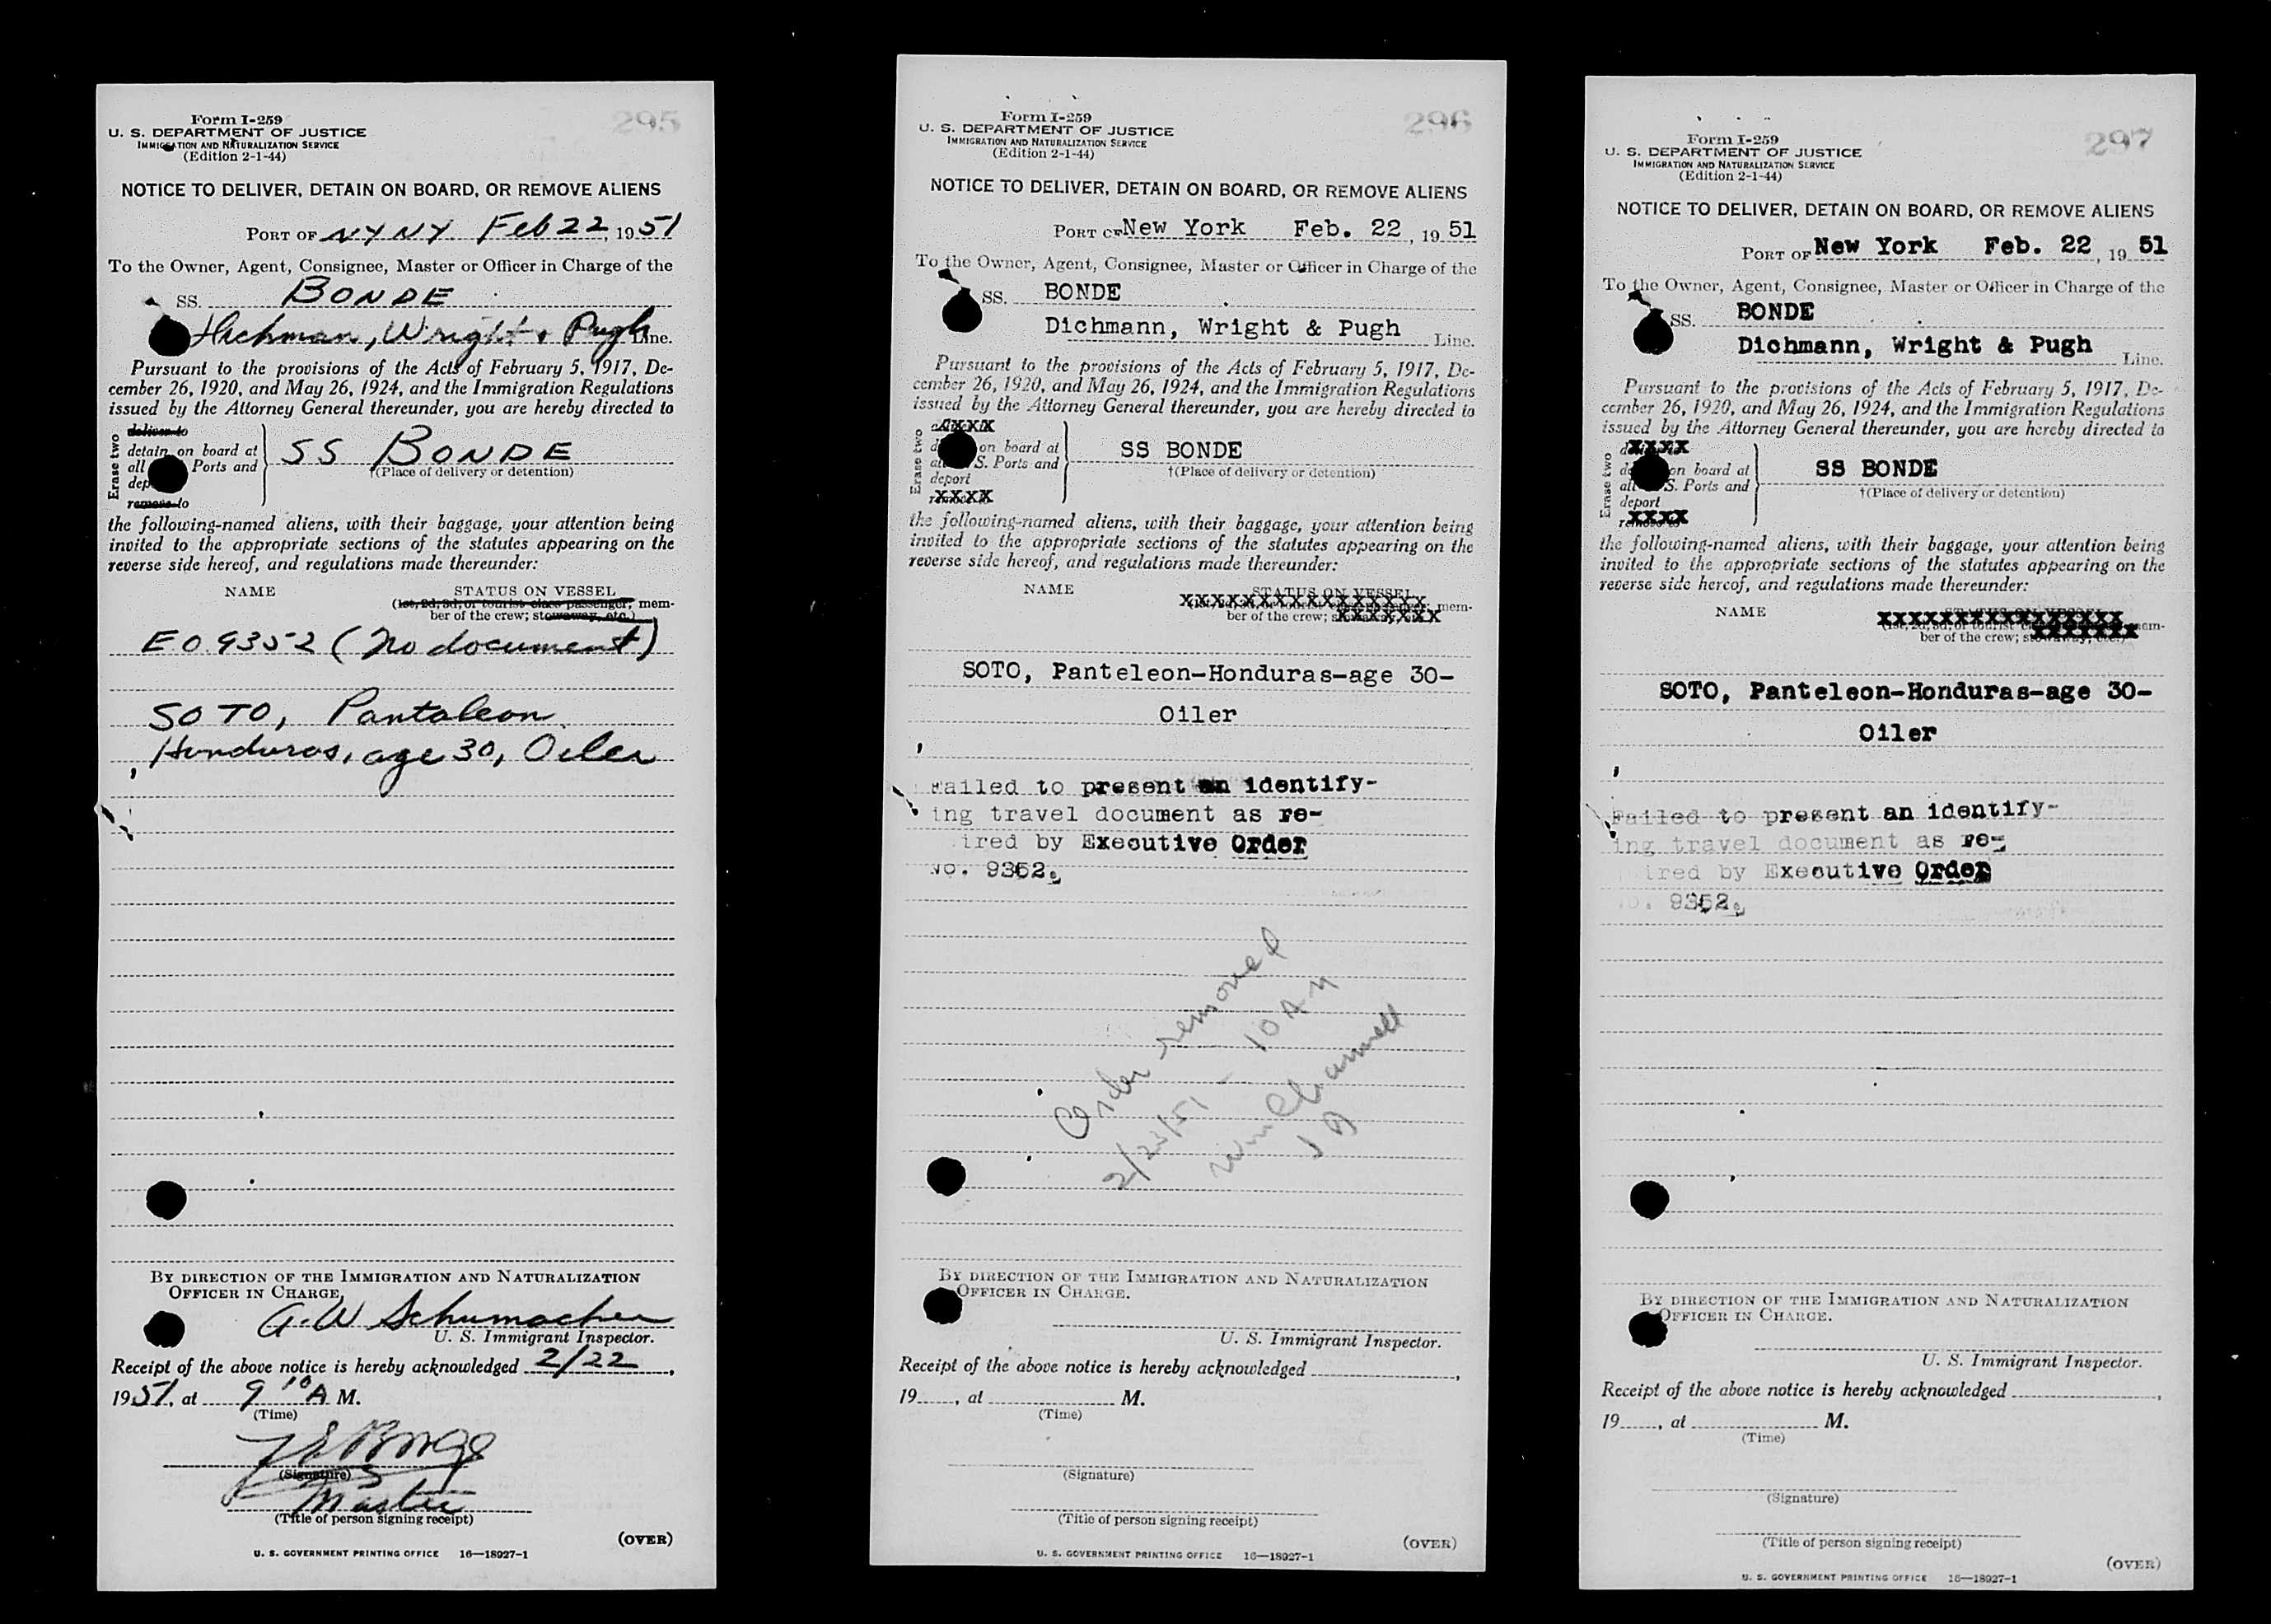 295
Form I-259
U. S. DEPARTMENT OF JUSTICE
IMMIGRATION AND NATURALIZATION SERVICE
(Edition 2-1-44)
NOTICE TO DELIVER, DETAIN ON BOARD, OR REMOVE ALIENS
PORT OF NY NY. Feb 22, 1951
To the Owner, Agent, Consignee, Master or Officer in Charge of the
SS. BONDE
Wright & Pugh Line.
Pursuant to the provisions of the Acts of February 5, 1917, De-
cember 26, 1920, and May 26, 1924, and the Immigration Regulations
issued by the Attorney General thereunder, you are hereby directed to
Erase two
deliver to
detain on board at
all Ports and
dep
remove to
SS BONDE
†(Place of delivery or detention)
the following-named aliens, with their baggage, your attention being
invited to the appropriate sections of the statutes appearing on the
reverse side hereof, and regulations made thereunder:
NAME STATUS ON VESSEL
(1st, 2d, 3d, or tourist class passenger; mem-
ber of the crew; stowaway, etc.)
E O 9352 (No document)
SOTO, Pantaleon
Honduras, age 30, Oiler
BY DIRECTION OF THE IMMIGRATION AND NATURALIZATION
OFFICER IN CHARGE,
A. W Schumacher
U. S. Immigrant Inspector.
Receipt of the above notice is hereby acknowledged 2/22,
1951, at 9 10 A M.
(Time)
(Signature)
Master
(Title of person signing receipt)
(OVER)
U. S. GOVERNMENT PRINTING OFFICE 16—18927-1
296
Form I-259
U. S. DEPARTMENT OF JUSTICE
IMMIGRATION AND NATURALIZATION SERVICE
(Edition 2-1-44)
NOTICE TO DELIVER, DETAIN ON BOARD, OR REMOVE ALIENS
PORT OF New York Feb. 22, 1951
To the Owner, Agent, Consignee, Master or Officer in Charge of the
SS. BONDE
Dichmann, Wright & Pugh Line.
Pursuant to the provisions of the Acts of February 5, 1917, De-
cember 26, 1920, and May 26, 1924, and the Immigration Regulations
issued by the Attorney General thereunder, you are hereby directed to
Erase two
XXXX
on board at
S. Ports and
deport
XXXX
SS BONDE
†(Place of delivery or detention)
the following-named aliens, with their baggage, your attention being
invited to the appropriate sections of the statutes appearing on the
reverse side hereof, and regulations made thereunder:
NAME STATUS ON VESSEL
XXXXXXXXXXXXXXXXXX mem-
ber of the crew; XXXXXXX
SOTO, Panteleon-Honduras-age 30-
Oiler
Failed to present an identify-
ing travel document as re-
ired by Executive Order
No. 9352.
Order removed
2/23/51 - 10 AM
BY DIRECTION OF THE IMMIGRATION AND NATURALIZATION
OFFICER IN CHARGE.
U. S. Immigrant Inspector.
Receipt of the above notice is hereby acknowledged ,
19 , at M.
(Time)
(Signature)
(Title of person signing receipt)
(OVER)
U. S. GOVERNMENT PRINTING OFFICE 16—18927-1
297
Form I-259
U. S. DEPARTMENT OF JUSTICE
IMMIGRATION AND NATURALIZATION SERVICE
(Edition 2-1-44)
NOTICE TO DELIVER, DETAIN ON BOARD, OR REMOVE ALIENS
PORT OF New York Feb. 22, 1951
To the Owner, Agent, Consignee, Master or Officer in Charge of the
SS. BONDE
Dichmann, Wright & Pugh Line.
Pursuant to the provisions of the Acts of February 5, 1917, De-
cember 26, 1920, and May 26, 1924, and the Immigration Regulations
issued by the Attorney General thereunder, you are hereby directed to
Erase two
XXXX
on board at
all S. Ports and
deport
XXXX
SS BONDE
†(Place of delivery or detention)
the following-named aliens, with their baggage, your attention being
invited to the appropriate sections of the statutes appearing on the
reverse side hereof, and regulations made thereunder:
NAME STATUS ON VESSEL
XXXXXXXXXXXXXXXXXX mem-
ber of the crew; XXXXXXX
SOTO, Panteleon-Honduras-age 30-
Oiler
Failed to present an identify-
ing travel document as re-
ired by Executive Order
o. 9352.
BY DIRECTION OF THE IMMIGRATION AND NATURALIZATION
OFFICER IN CHARGE.
U. S. Immigrant Inspector.
Receipt of the above notice is hereby acknowledged ,
19 , at M.
(Time)
(Signature)
(Title of person signing receipt)
(OVER)
U. S. GOVERNMENT PRINTING OFFICE 16—18927-1